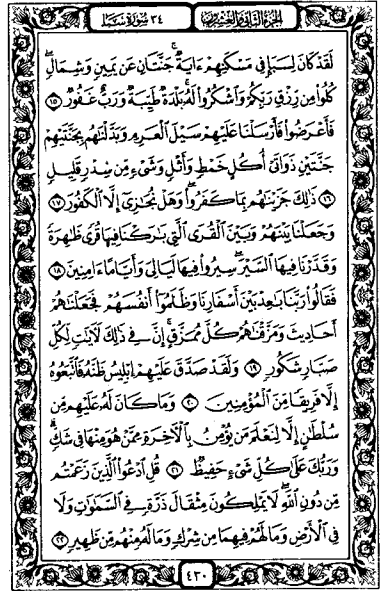 الجزء الثاني والعشرون ٣٤ سورة سبأ
لَقَدْ كَانَ لِسَبَإٍ فِي مَسْكَنِهِمْ ءَايَةٌ ۖ جَنَّتَانِ عَن يَمِينٍ وَشِمَالٍ ۖ
كُلُوا۟ مِن رِّزْقِ رَبِّكُمْ وَٱشْكُرُوا۟ لَهُۥ ۚ بَلْدَةٌ طَيِّبَةٌ وَرَبٌّ غَفُورٌ ١٥
فَأَعْرَضُوا۟ فَأَرْسَلْنَا عَلَيْهِمْ سَيْلَ ٱلْعَرِمِ وَبَدَّلْنَٰهُم بِجَنَّتَيْهِمْ
جَنَّتَيْنِ ذَوَاتَيْ أُكُلٍ خَمْطٍ وَأَثْلٍ وَشَيْءٍ مِّن سِدْرٍ قَلِيلٍ
١٦ ذَٰلِكَ جَزَيْنَٰهُم بِمَا كَفَرُوا۟ ۖ وَهَلْ نُجَٰزِيٓ إِلَّا ٱلْكَفُورَ ١٧
وَجَعَلْنَا بَيْنَهُمْ وَبَيْنَ ٱلْقُرَى ٱلَّتِي بَٰرَكْنَا فِيهَا قُرًى ظَٰهِرَةً
وَقَدَّرْنَا فِيهَا ٱلسَّيْرَ ۖ سِيرُوا۟ فِيهَا لَيَالِيَ وَأَيَّامًا ءَامِنِينَ ١٨
فَقَالُوا۟ رَبَّنَا بَٰعِدْ بَيْنَ أَسْفَارِنَا وَظَلَمُوٓا۟ أَنفُسَهُمْ فَجَعَلْنَٰهُمْ
أَحَادِيثَ وَمَزَّقْنَٰهُمْ كُلَّ مُمَزَّقٍ ۚ إِنَّ فِي ذَٰلِكَ لَءَايَٰتٍ لِّكُلِّ
صَبَّارٍ شَكُورٍ ١٩ وَلَقَدْ صَدَّقَ عَلَيْهِمْ إِبْلِيسُ ظَنَّهُۥ فَٱتَّبَعُوهُ
إِلَّا فَرِيقًا مِّنَ ٱلْمُؤْمِنِينَ ٢٠ وَمَا كَانَ لَهُۥ عَلَيْهِم مِّن
سُلْطَٰنٍ إِلَّا لِنَعْلَمَ مَن يُؤْمِنُ بِٱلْءَاخِرَةِ مِمَّنْ هُوَ مِنْهَا فِي شَكٍّ ۗ
وَرَبُّكَ عَلَىٰ كُلِّ شَيْءٍ حَفِيظٌ ٢١ قُلِ ٱدْعُوا۟ ٱلَّذِينَ زَعَمْتُم
مِّن دُونِ ٱللَّهِ ۖ لَا يَمْلِكُونَ مِثْقَالَ ذَرَّةٍ فِي ٱلسَّمَٰوَٰتِ وَلَا
فِي ٱلْأَرْضِ وَمَا لَهُمْ فِيهِمَا مِن شِرْكٍ وَمَا لَهُۥ مِنْهُم مِّن ظَهِيرٍ ٢٢
٤٣٠